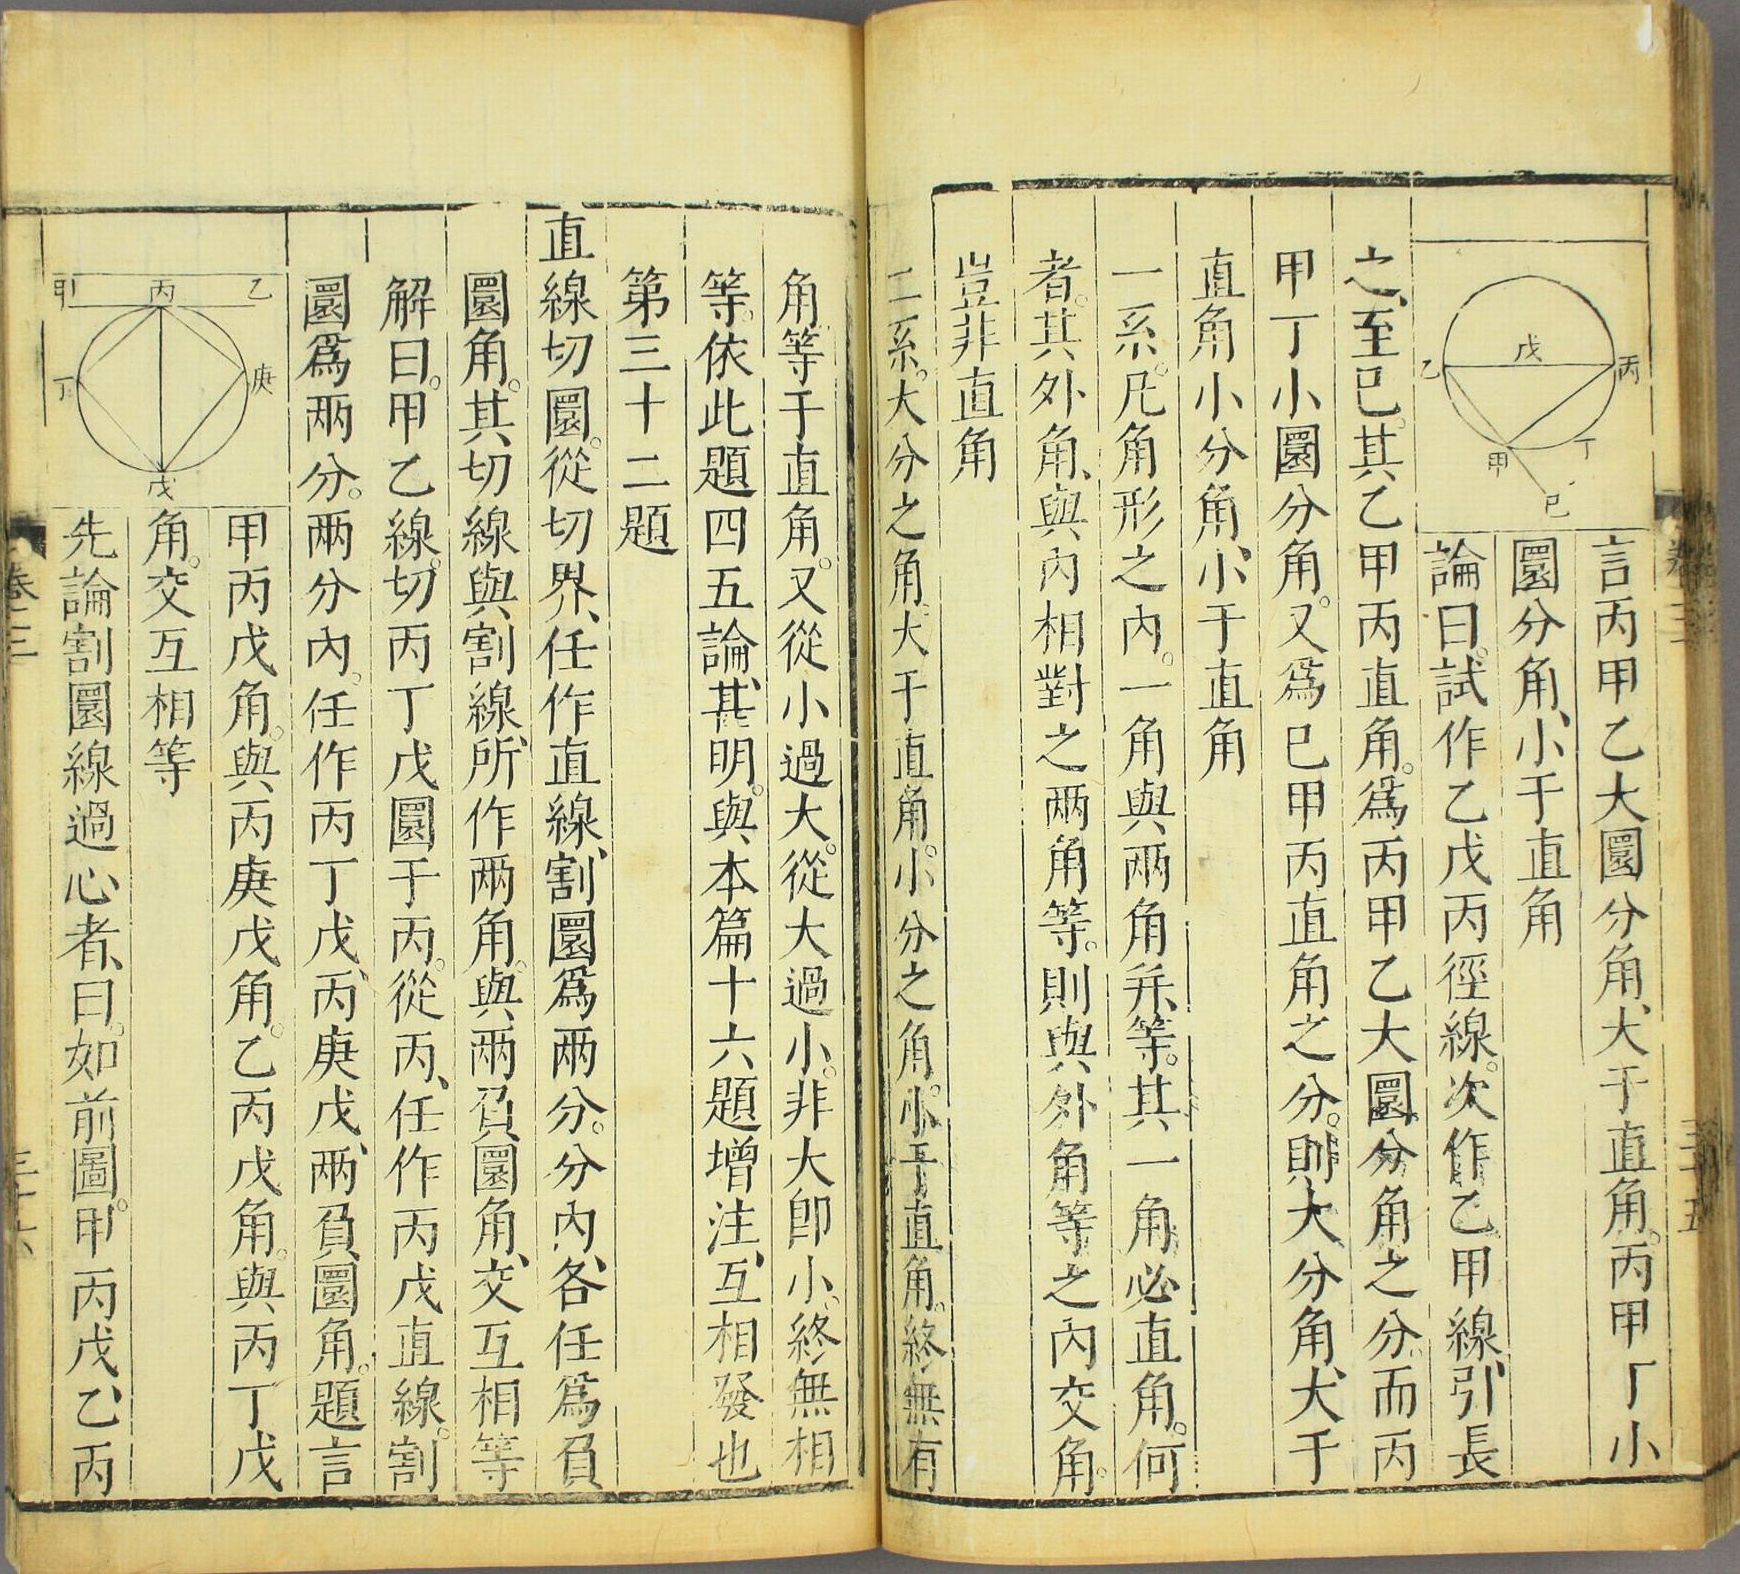 丙
戊
乙
丁
甲
己
言丙甲乙大圜分角、大于直角。丙甲丁小
圜分角、小于直角
論曰。試作乙戊丙徑線。次作乙甲線、引長
之、至己。其乙甲丙直角。爲丙甲乙大圜分角之分。而丙
甲丁小圜分角。又爲己甲丙直角之分。則大分角、大于
直角小分角、小于直角
一系。凡角形之内。一角與兩角并、等。其一角必直角。何
者。其外角、與内相對之兩角等。則與外角等之内交角。
豈非直角
二系。大分之角。大于直角。小分之角。小于直角。終無有
卷三
三十五
角等于直角。又從小過大。從大過小。非大卽小。終無相
等。依此題四五論、甚明。與本篇十六題增注、互相發也
第三十二題
直線切圜。從切界、任作直線、割圜爲兩分。分内、各任爲負
圜角。其切線、與割線、所作兩角。與兩負圜角、交互相等
解曰。甲乙線。切丙丁戊圜于丙。從丙、任作丙戊直線。割
圜爲兩分。兩分内。任作丙丁戊、丙庚戊、兩負圜角。題言
乙
丙
甲
庚
丁
戊
甲丙戊角。與丙庚戊角。乙丙戊角。與丙丁戊
角。交互相等
先論割圜線過心者、曰。如前圖。甲丙戊、乙丙
卷三
三十六